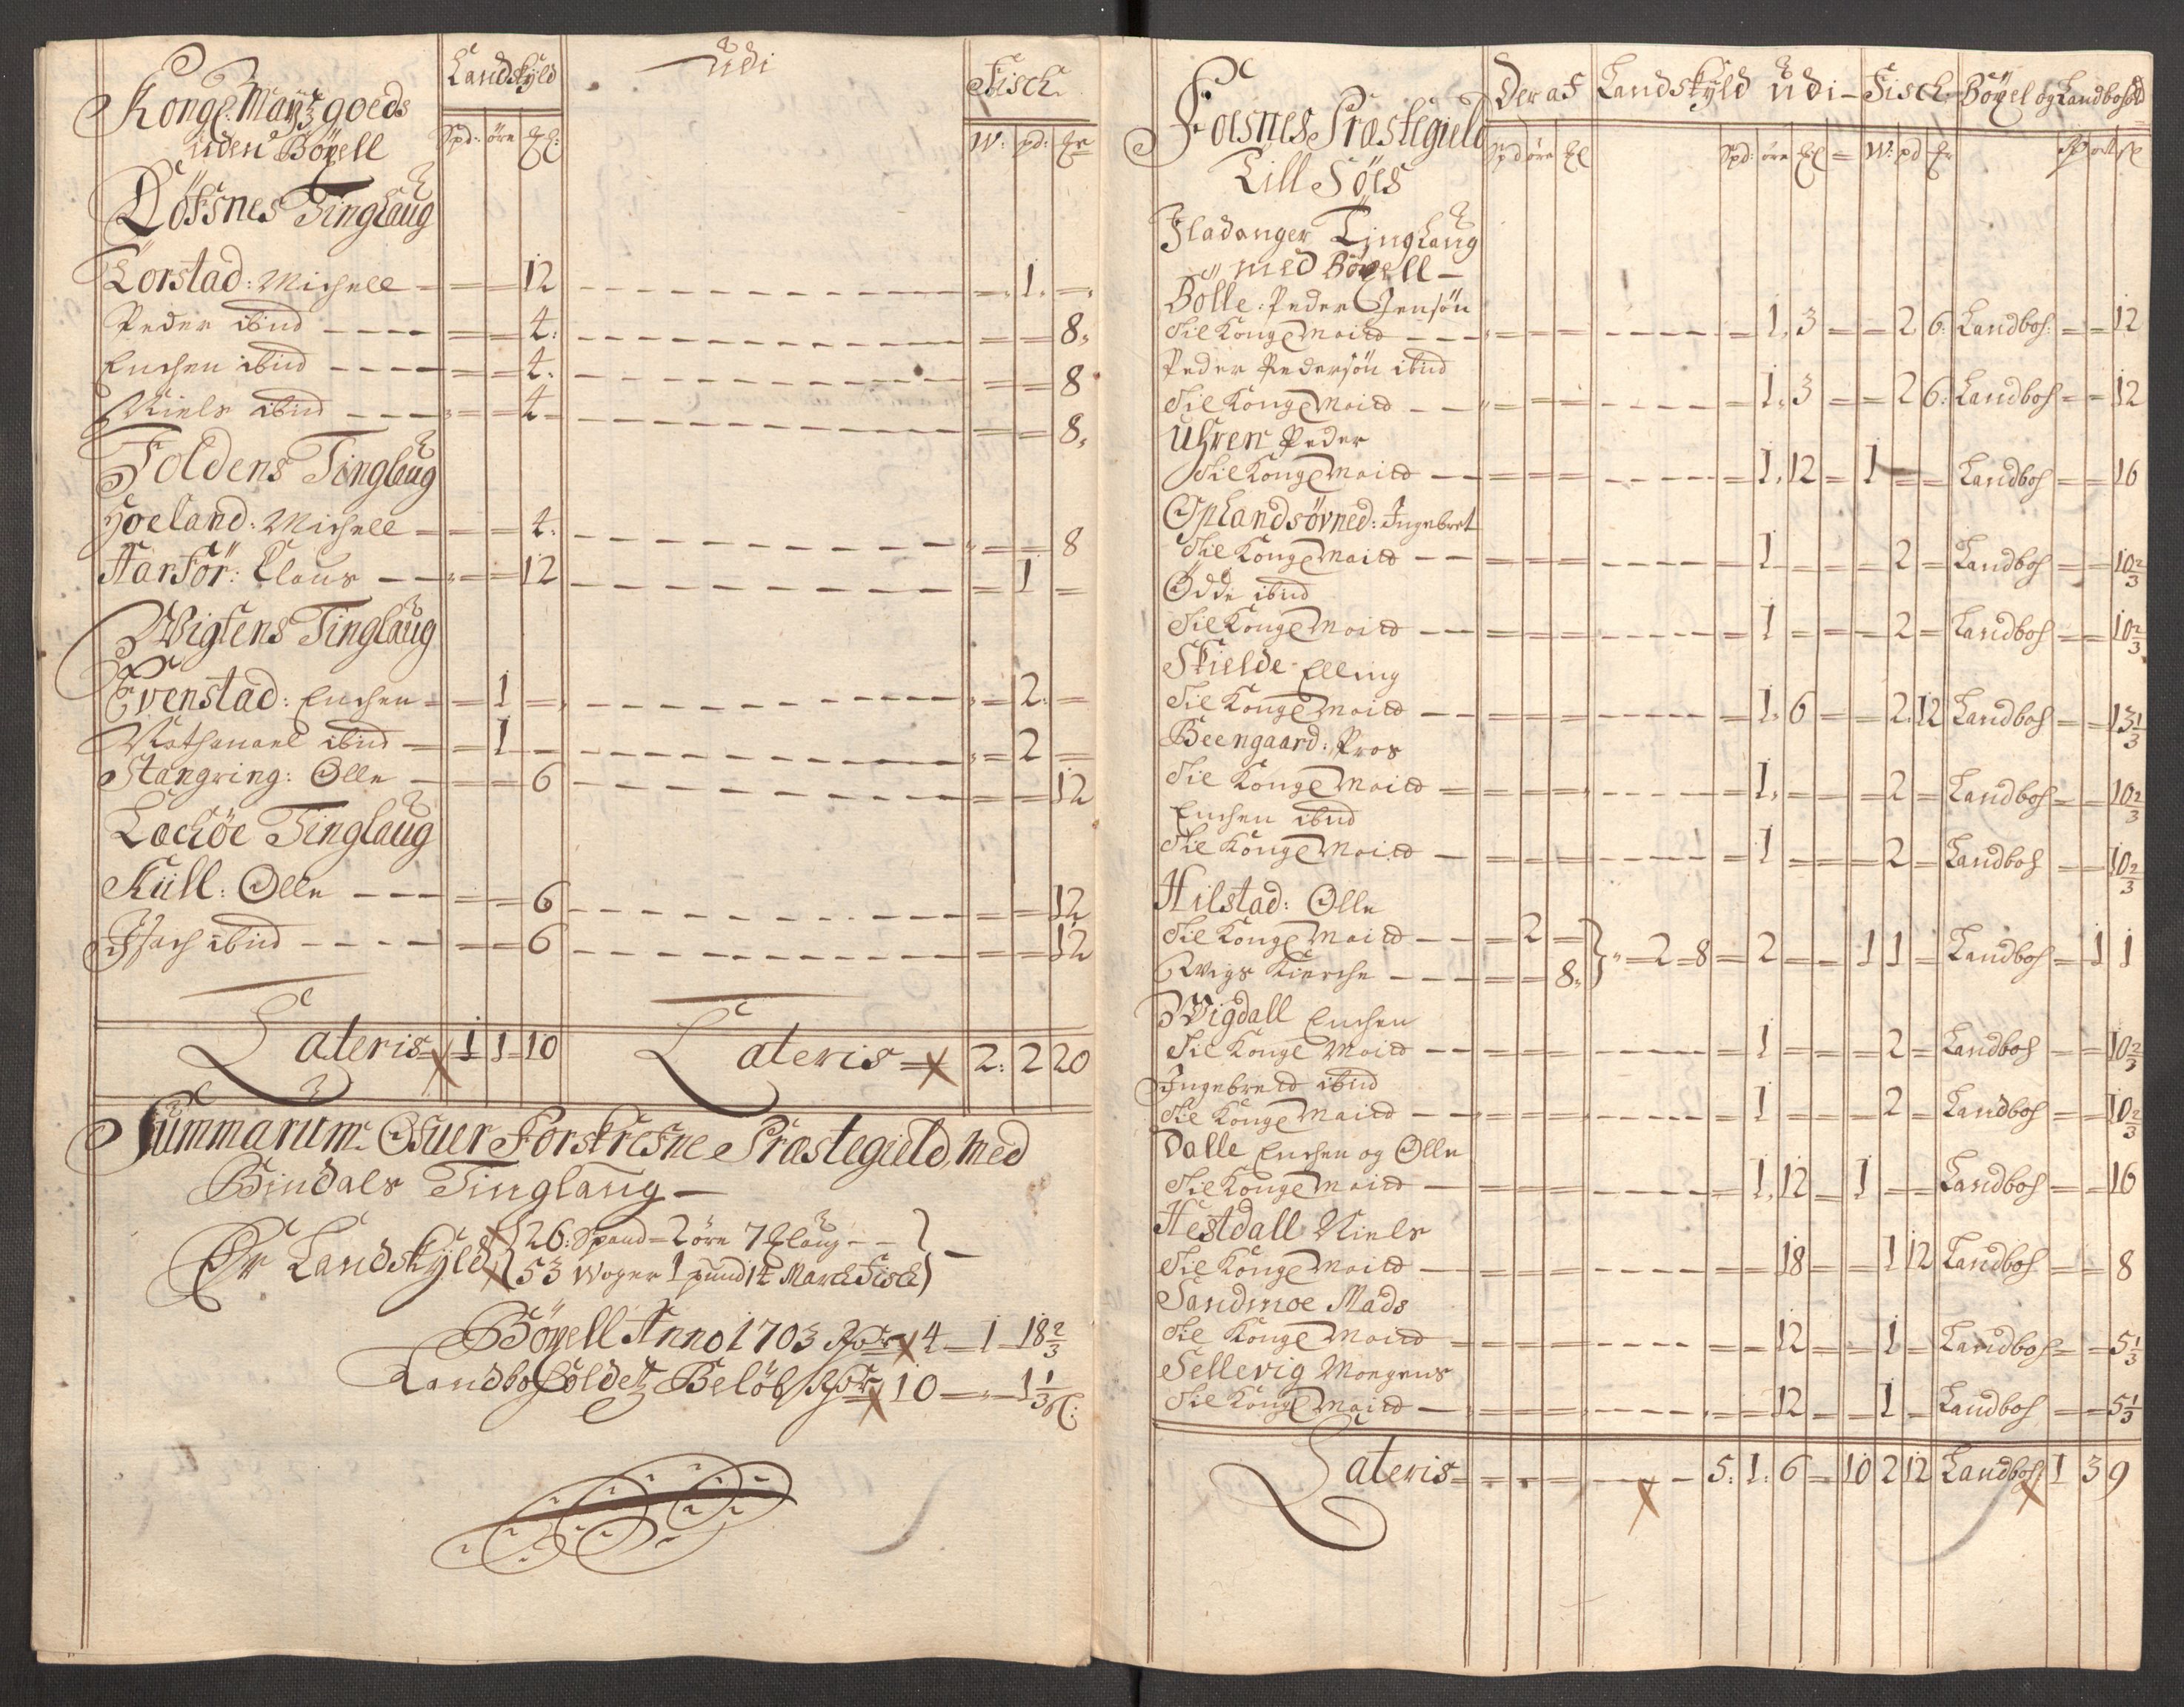 Kongl: Maytz goeds
uden Böxell
Landskyld
udi
Fisch
Spd: öre Ƞl:
W: pd: ƞr
Döfsnes Tinglaug
Lorstad: Michell — = = 12 — = 1. =
Peder ibid — = = 4: — = = 8,
Enchen ibid — = = 4. — = = 8
Niels ibid — = = 4 — = = 8,
Foldens Tinglaug
Hoeland: Michell = = = 4. — = = 8
Harför: Claus — = = 12 — = 1 =
Wigtens Tinglaug
Evenstad: Enchen = = 1 = — = 2. =
Nathanael ibid = = 1 — = 2 =
Stangring: Olle — = = 6 — = = 12
Lochöe Tinglaug
Küll: Olle — = = 6 — = = 12
Isach ibid — = = 6 — = = 12
Lateris 1 1 10 Lateris 2: 2 20
Summarum Ofuer Forskrefne Præstegield, med
Bindals Tinglaug —
Er Landskyld 26: Spand = 2 öre 7 Ƞlaug
53 Woger 1 pund 14 March Fisch
Böxell Anno 1703 Rdr 4 — 1 — 18 2/3
Landbosholdetz Belöb Rdr 10 — „ — 1 1/3 sl:
Foesnes Præstegield
Till Söes
Der af Landskyld udi — Fisch Böxel og Landbohold
Spd öre Ƞl Spd: öre Ƞl = W: pd ƞr R ort sl
Fladanger Tinglaug
med Böxell —
Bolle: Peder Jensön
Til Kongl Maitt — = 1. 3 = = 2 6. Landboh: = = 12
Peder Pedersön ibid
Til Kongl Maitt — = 1. 3 = = 2 6: Landboh = = 12
Uhren Peder
Til Kongl Maitt — = 1. 12 = 1 = = Landboh = = 16
Oplandsövned: Ingebret
Til Kongl Maitt — 1 2 = Landboh = = 10 2/3
Odde ibid
Til Kongl Maitt — = 1 = = = 2 = Landboh = = 10 2/3
Skielde - Elling
Til Kongl Maitt — = 1. 6 = = 2. 12 Landboh = = 13 1/3
Beengaard: Pros
Til Kongl Maitt = 1. = = = 2 = Landboh = = 10 2/3
Enchen ibid
Til Kongl Maitt — = 1 = = = 2 = Landboh = = 10 2/3
Hilstad: Olle
Til Kongl Maitt — = 2 =
Wigs Kierche — = = 8. = 2 = 8 = 2 = = 1 1 = Landboh = 1 1
Wigdall Enchen
Til Kongl Maitt — = 1 = = = 2 = Landboh = = 10 2/3
Ingebrett ibid
Til Kongl Maitt — = 1 = = = 2 = Landboh = = 10 2/3
Dalle Enchen og Olle
Til Kongl Maitt — = 1. 12 = 1 = = Landboh = = 16
Hestdall Niels
Til Kongl Maitt — = = 18 = = 1 12 Landboh = = 8
Sandmoe Mads
Til Kongl Maitt = = 12 = = 1 = Landboh = = 5 1/3
Sellevig Mongens
Til Kongl Maitt — = = 12 = = 1 = Landboh = = 5 1/3
Lateris = 5: 1: 6 = 10 2 12 Landboh 1 3 9